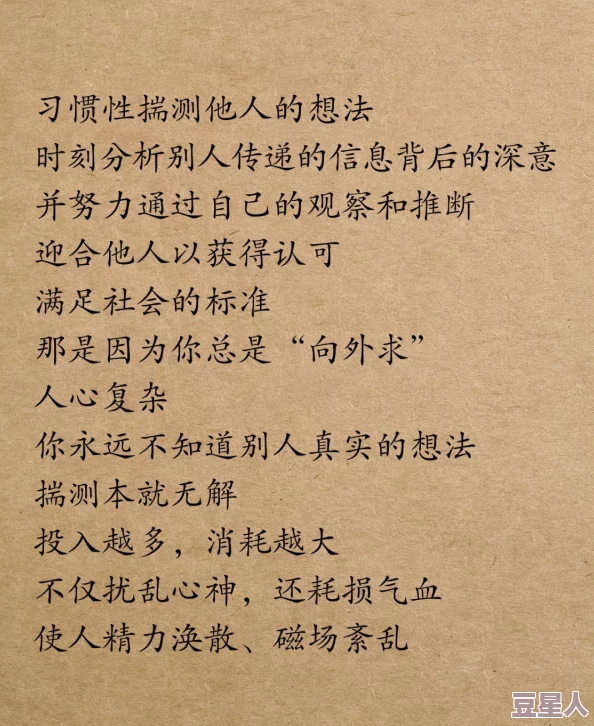 习惯性揣测他人的想法
时刻分析别人传递的信息背后的深意
并努力通过自己的观察和推断
迎合他人以获得认可
满足社会的标准
那是因为你总是“向外求”
人心复杂
你永远不知道别人真实的想法
揣测本就无解
投入越多，消耗越大
不仅扰乱心神，还耗损气血
使人精力涣散、磁场紊乱
豆星人